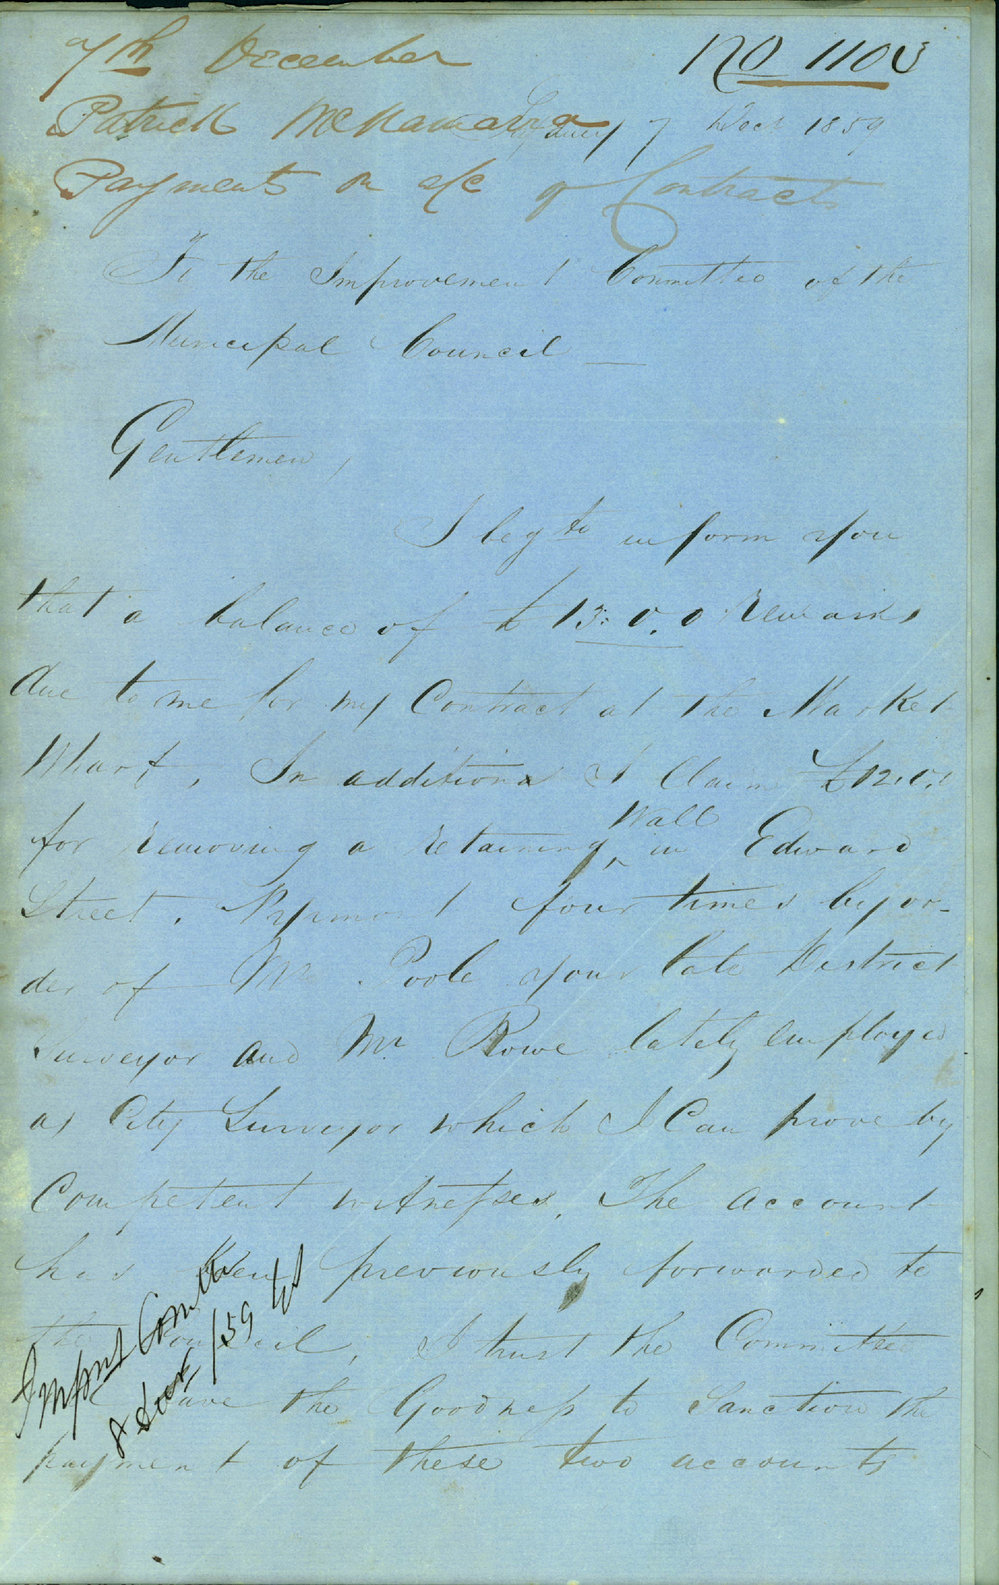 7th December
No 1103
Patrick McNamara
Sydney 7 Decr 1859
Payments on a/c of Contracts
To the Improvement Committee of the
Municipal Council
Gentlemen,
I beg to inform you
that a balance of £13:0.0 remains
due to me for my Contract at the Market
Wharf, In addition I Claim £12.0.0
for removing a retaining Wall in Edward
Street, Pyrmont four times by or-
der of Mr Poole your late District
Surveyor and Mr Rowe lately employed
as City Surveyor which I Can prove by
Competent witnesses. The account
has been previously forwarded to
the Council, I trust the Committee
will have the Goodness to Sanction the
payment of these two accounts
Impmt Comittee
8 Decr /59